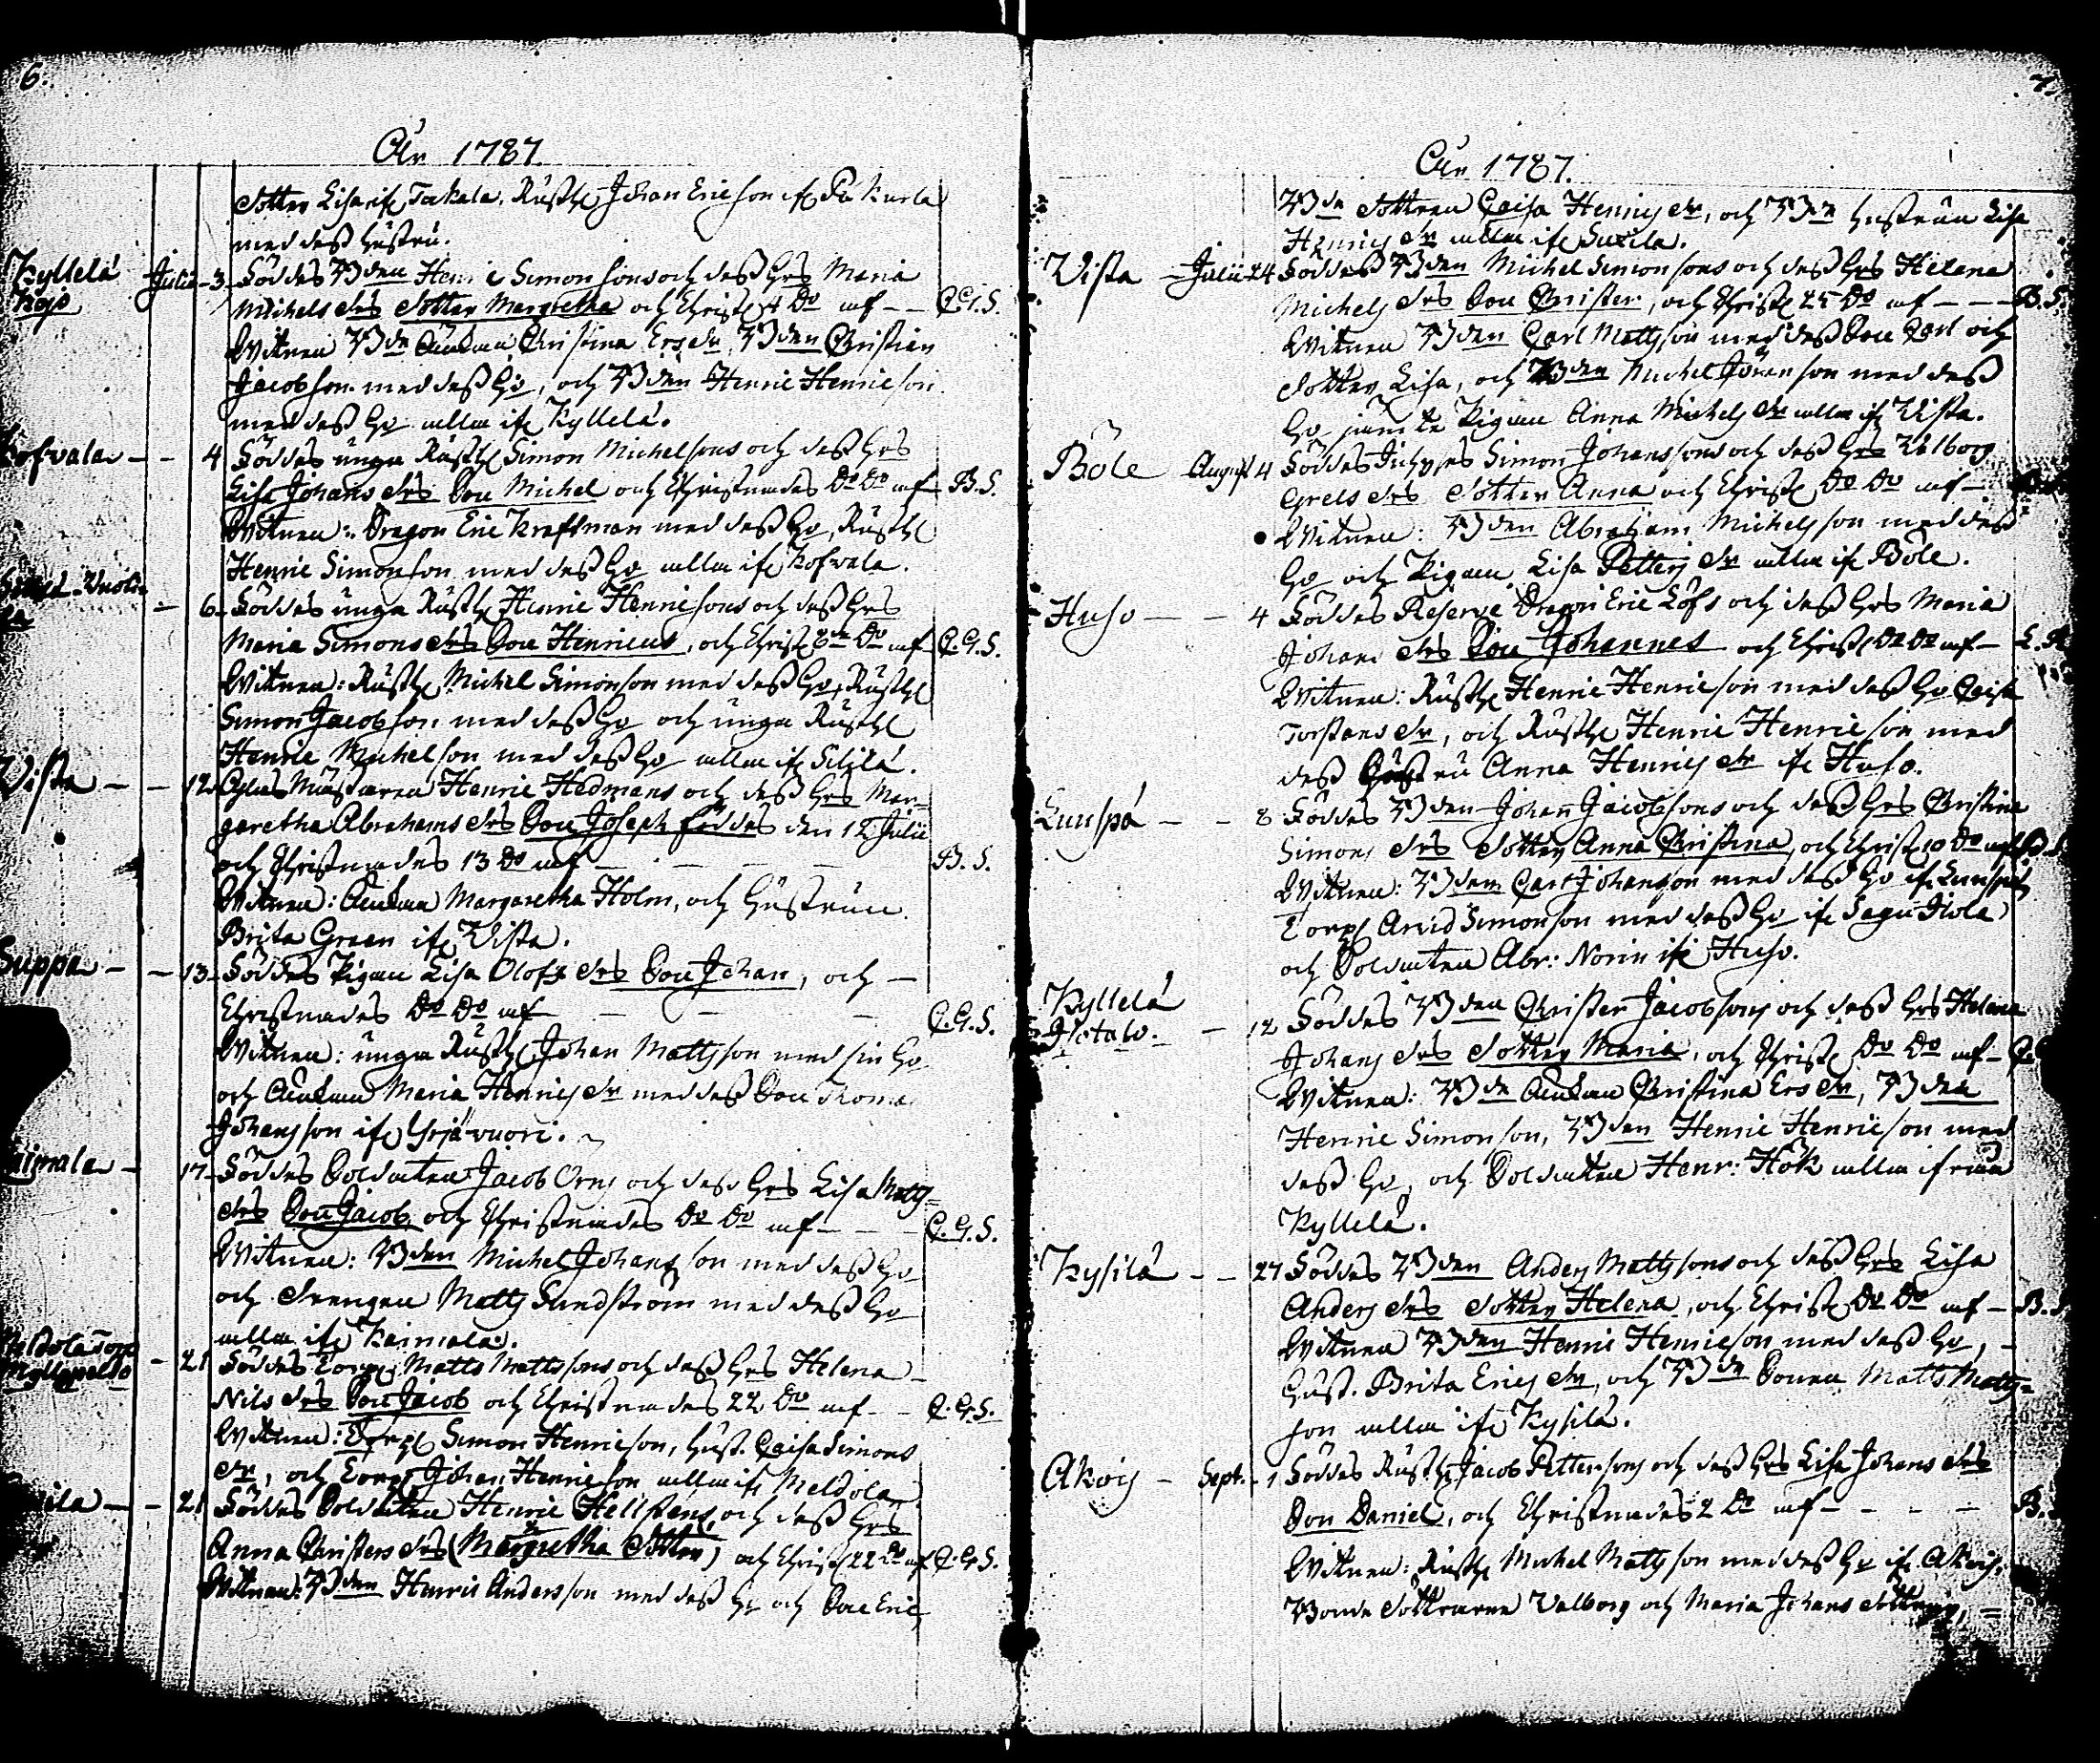 6.
År 1787.
dotter Lisa ifr Tackala, Rusth Johan Ericson ifr
med dess hustru.
Kyllelä
Kojo
Julii 3 Föddes Bden Henric Simonsons och dess Hrs Maria
Michels drs dotter Margretha och Christ 4 Do af C.G.S.
Witnen Bde Änkan Christina Ersdr, Bden Christian
Jacobson med dess Ho, och Bden Henric Henricson
med dess Ho alla ifr Kyllelä.
Kofvala 4 Föddes unga Rusth Simon Michelsons och dess Hrs
Lisa Johans drs Son Michel och Christnades Do Do af B.S.
Witnen: Dragon Eric Kraftman med dess Ho, Rusth
Henric Simonson med dess Ho alla ifr Kofvala.
6 Föddes unga Rusth Henric Henricsons och dess Hrs
Maria Simons drs Son Henricus, och Christ 8de Do af C.G.S.
Witnen: Rusth Michel Simonson med dess Ho, Rusth
Simon Jacobson med dess Ho och unga Rusth
Henric Michelson med dess Ho alla ifr
Vista 12 Mästaren Henric Hedmans och dess Hrs Mar-
garetha Abrahams drs Son Joseph föddes den 12 Julii
och Christnades 13 Do af B.S.
Witnen: Änkan Margaretha Holm, och Hustrun
Brita Green ifr Vista.
Suppa 13 Föddes Pigan Lisa Olofs drs Son Johan, och
Christnades Do Do af C.G.S.
Witnen: unga Rusth Johan Mattsson med sin Ho
och Änkan Maria Henrics dr med dess Son Thomas
Johansson ifr Yrjävuori.
17 Föddes Soldaten Jacob Orns och dess Hrs Lisa Matts-
drs Son Jacob och Christnades Do Do af C.G.S.
Witnen: Bden Michel Johansson med dess Ho
och Drengen Matts Sundström med dess Ho
alla ifr Kaimala.
21 Föddes Torp Matts Mattssons och dess Hrs Helena
Nils drs Son Jacob och Christnades 22 Do af C.G.S.
Witnen: Torp Simon Henricson, Hust. Caisa Simons
dr, och Torp Johan Henricson alla ifr Meldola
21 Föddes Soldaten Henric Hellstens, och dess Hrs
Anna Christers drs (Margretha dotter) och Christ 22 Do af C.G.S.
Witnen: Bden Henric Andersson med dess Ho och Son Eric
7.
År 1787.
Bde dottren Caisa Henrics dr, och Bde hustrun Lisa
Henrics dr alla ifr
Vista Julii 24 Föddes Bden Michel Simonsons och dess Hrs Helena
Michels drs Son Christer, och Christ 25 Do af B.S.
Witnen Bden Carl Mattsson med dess Son Carl och
dotter Lisa, och Bden Michel Johansson med dess
Ho jämte Pigan Anna Michels dr alla ifr Vista.
Böle August 4 Föddes Simon Johanssons och dess Hrs Valborg
Grels drs dotter Anna och Christ Do Do af
Witnen: Bden Abraham Michelsson med dess
Ho och Pigan Lisa Petters dr alla ifr Böle.
Huso 4 Föddes Reserve Dragon Eric Löfs och dess Hrs Maria
Johans drs Son Johannes och Christ Do Do af
Witnen: Rusth Henric Henricson med dess Ho Caisa
Torstans dr, och Rusth Henric Henricson med
dess Hustru Anna Henrics dr ifr Huso.
Luuspä 8 Föddes Bden Johan Jacobsons och dess Hrs Christina
Simons drs dotter Anna Christina, och Christ 10 Do af
Witnen: Bden Carl Johansson med dess Ho ifr Luuspä,
Torp Arvid Simonson med dess Ho ifr
och Soldaten Abr: Norin ifr Huso.
Kyllelä
12 Föddes Bden Christer Jacobsons och dess Hrs Helena
Johans drs dotter Maria, och Christ Do Do af
Witnen: Bde Änkan Christina Ers dr, Bden
Henric Simonson, Bden Henric Henricson med
dess Ho, och Soldaten Henr: Hök alla ifrån
Kyllelä.
Kysilä 27 Föddes Bden Anders Mattssons och dess Hrs Lisa
Anders drs dotter Helena, och Christ Do Do af B.S.
Witnen Bden Henric Henricson med dess Ho,
Hust. Brita Erics dr, och Bde Sonen Matts Matts-
son alla ifr Kysilä.
Akois Sept. 1 Föddes Rusth Jacob Pettersons och dess Hrs Lisa Johans drs
Son Daniel, och Christnades 2 Do af B.
Witnen: Rusth Michel Mattsson med dess Ho ifr Akois,
Bonde döttrarna Valborg och Maria Johans döttrar,